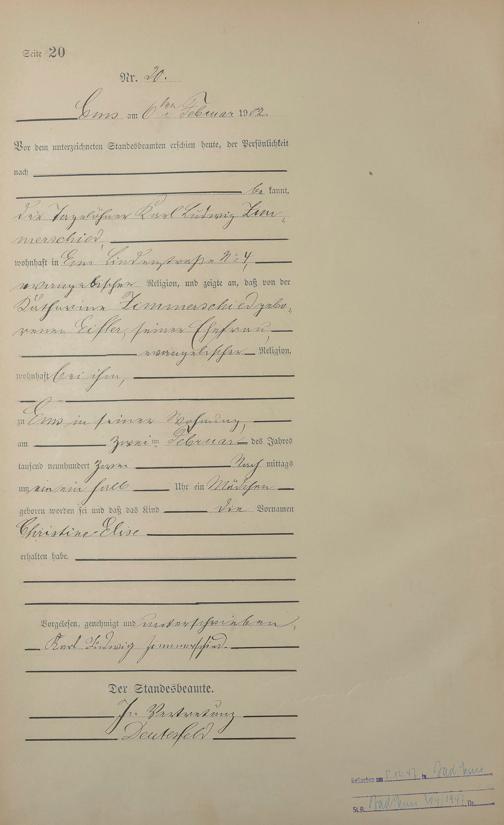 Seite 20
Nr. 20.
Ems am 6ten Februar 1902.
Vor dem unterzeichneten Standesbeamten erschien heute, der Persönlichkeit
nach
be kannt,
Karl Ludwig Zim-
merschied,
wohnhaft in Ems Lindenstraße No 4,
evangelischer Religion, und zeigte an, daß von der
Katharine Zimmerschied gebo-
renen seiner Ehefrau,
evangelischer Religion,
wohnhaft bei ihm,
zu Ems in seiner Wohnung,
am zwei ten Februar des Jahres
tausend neunhundert zwei Nach mittags
um ein ein halb Uhr ein Mädchen
geboren worden sei und daß das Kind die Vornamen
Christine Elise
erhalten habe.
Vorgelesen, genehmigt und unterschrieben,
Karl Ludwig Zimmerschied.
Der Standesbeamte.
In Vertretung